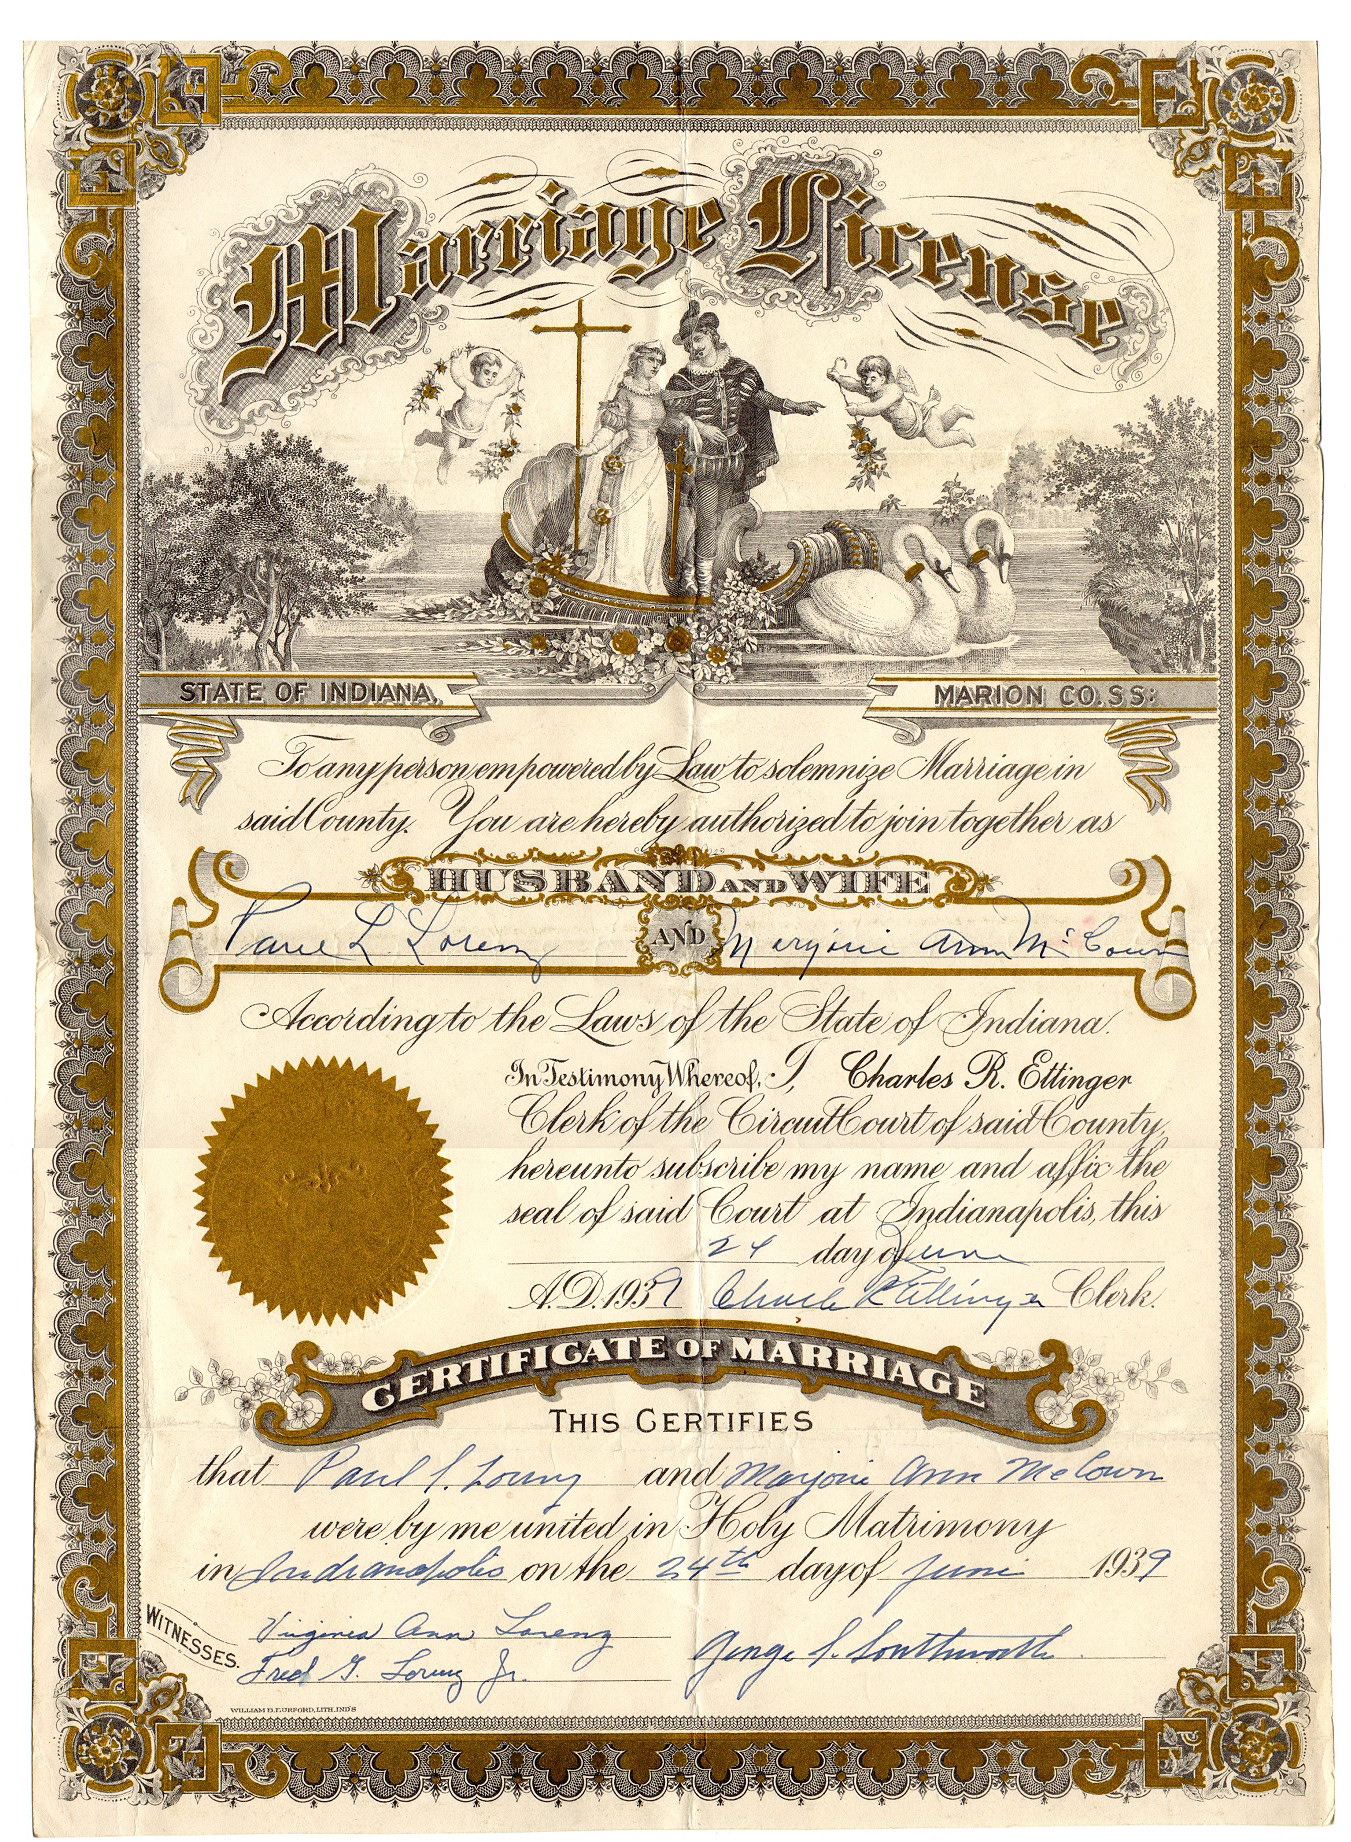 Marriage License
STATE OF INDIANA, MARION CO. SS:
To any person empowered by Law to solemnize Marriage in
said County. You are hereby authorized to join together as
HUSBAND AND WIFE
Paul L. Lorenz AND Marjorie Ann McCown
According to the Laws of the State of Indiana.
In Testimony Whereof, I, Charles R. Ettinger
Clerk of the Circuit Court of said County,
hereunto subscribe my name and affix the
seal of said Court at Indianapolis, this
24 day of June
A.D. 1939 Charles R Ettinger Clerk.
CERTIFICATE OF MARRIAGE
THIS CERTIFIES
that Paul L. Lorenz and Marjorie Ann McCown
were by me united in Holy Matrimony
in Indianapolis on the 24th day of June 1939
WITNESSES.
Virginia Ann Lorenz
Fred G. Lorenz Jr.
George S. Southworth
WILLIAM B. BURFORD, LITH. IND'S